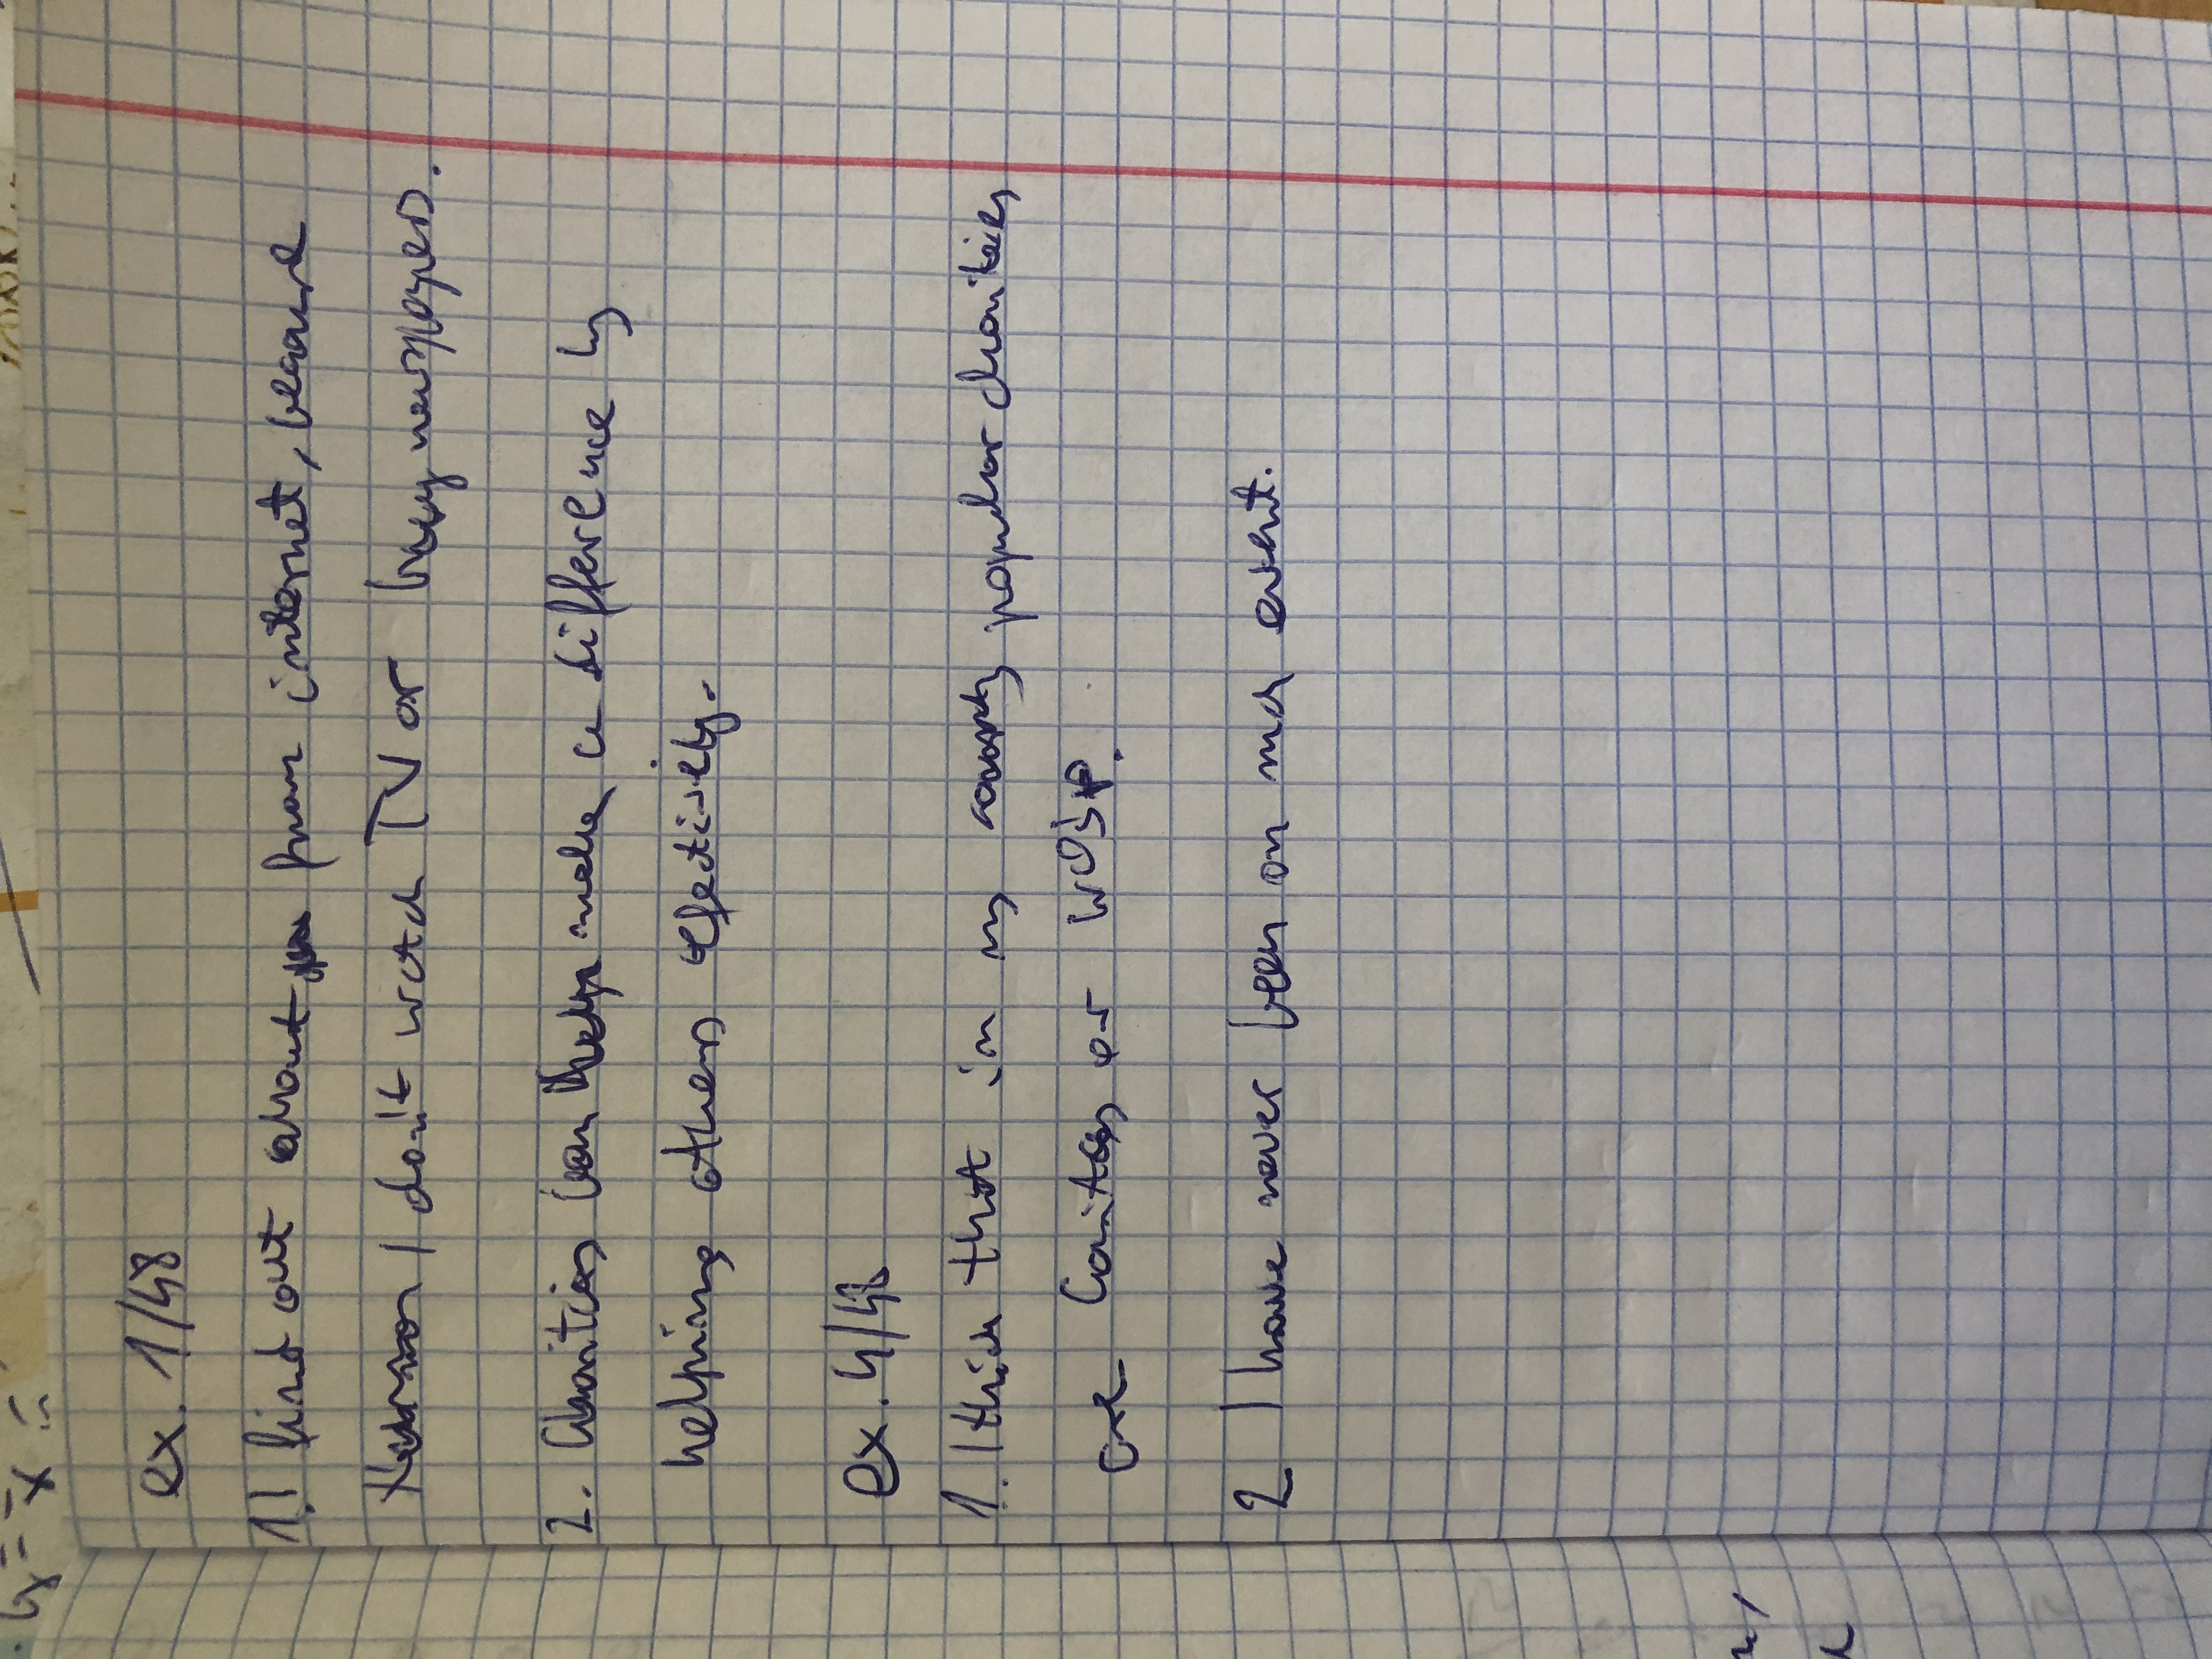 y = x =
ex. 1/48
1. I find out about from internet, because
I don't watch TV or buy newspapers.
2. Charities can make a difference by
helping others efectively.
ex. 4/48
1. I think that in my country popular charities
are Caritas or WOŚP.
2 I have never been on such event.